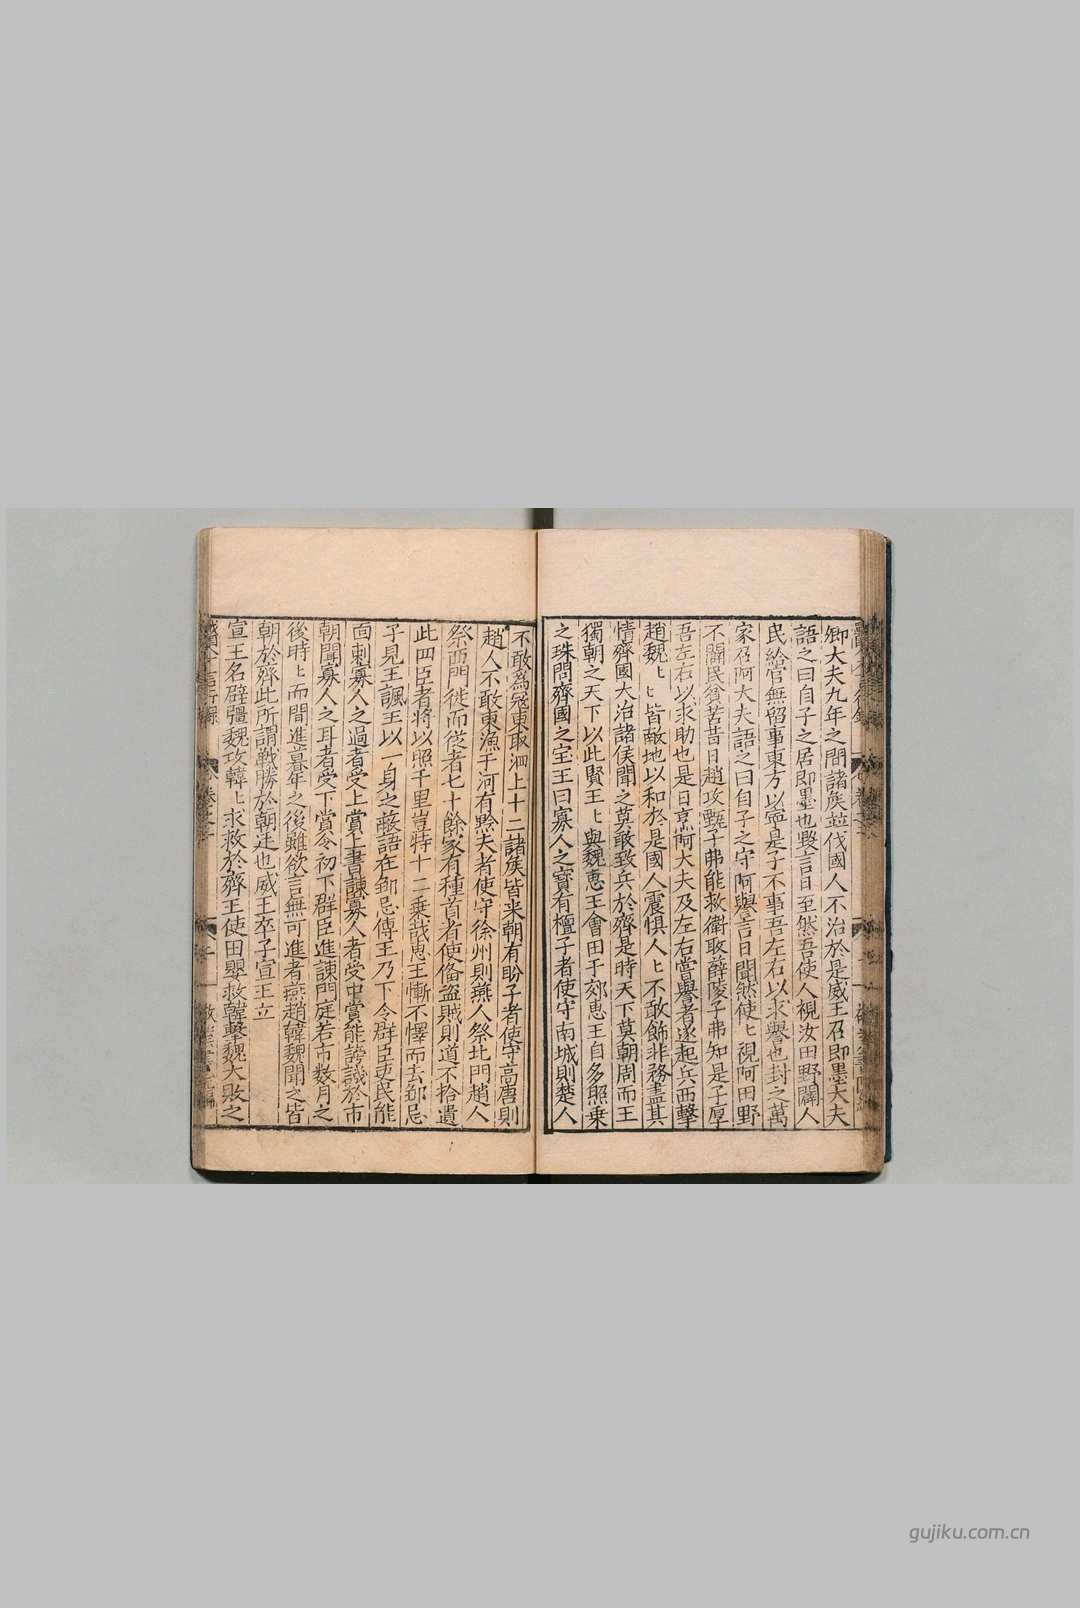 卿大夫九年之間諸侯並伐國人不治於是威王召即墨大夫
語之曰自子之居即墨也毀言日至然吾使人視汝田野闢人
民給官無留事東方以寧是子不事吾左右以求譽也封之萬
家召阿大夫語之曰自子之守阿譽言日聞然使ヒ視阿田野
不闢民貧苦昔日趙攻甄子弗能救衛取薛陵子弗知是子厚
吾左右以求助也是日烹阿大夫及左右嘗譽者遂起兵西擊
趙魏ヒヒ皆敵地以和於是國人震惧人ヒ不敢飾非務盡其
情齊國大治諸侯聞之莫敢致兵於齊是時天下莫朝周而王
獨朝之天下以此賢王ヒ與魏惠王會田于郊惠王自多照乗
之珠問齊國之宝王曰寡人之寶有檀子者使守南城則楚人
不敢為冦東取泗上十二諸侯皆来朝有盼子者使守高唐則
趙人不敢東漁于河有黔夫者使守徐州則燕人祭北門趙人
祭西門徙而從者七十餘家有種首者使俻盗賊則道不拾遺
此四臣者將以照千里豈特十二乗哉惠王慚不懌而去鄒忌
子見王諷王以一身之蔽語在鄒忌傳王乃下令群臣吏民能
面刺寡人之過者受上賞上書諫寡人者受中賞能謗議於市
朝聞寡人之耳者受下賞令初下群臣進諫門庭若市数月之
後時ヒ而間進朞年之後雖欲言無可進者燕趙韓魏聞之皆
朝於齊此所謂戦勝於朝廷也威王卒子宣王立
宣王名辟彊魏攻韓ヒ求救於齊王使田嬰救韓擊魏大敗之
gujiku.com.cn